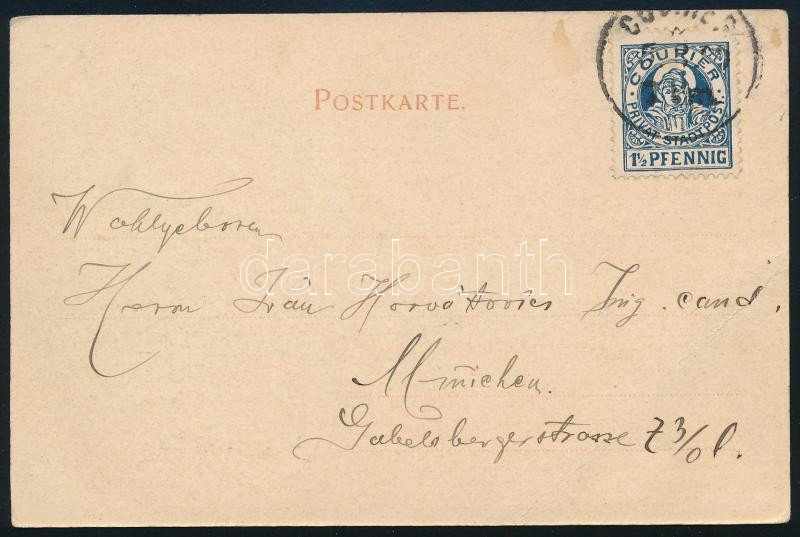 COURIER
POSTKARTE.
COURIER
PRIVAT STADTPOST.
1½ PFENNIG
Wohlgeboren
darabanth
Herrn Iván Horváttovics Ing. cand.
München.
Gabelsbergerstrasse 73/0 l.